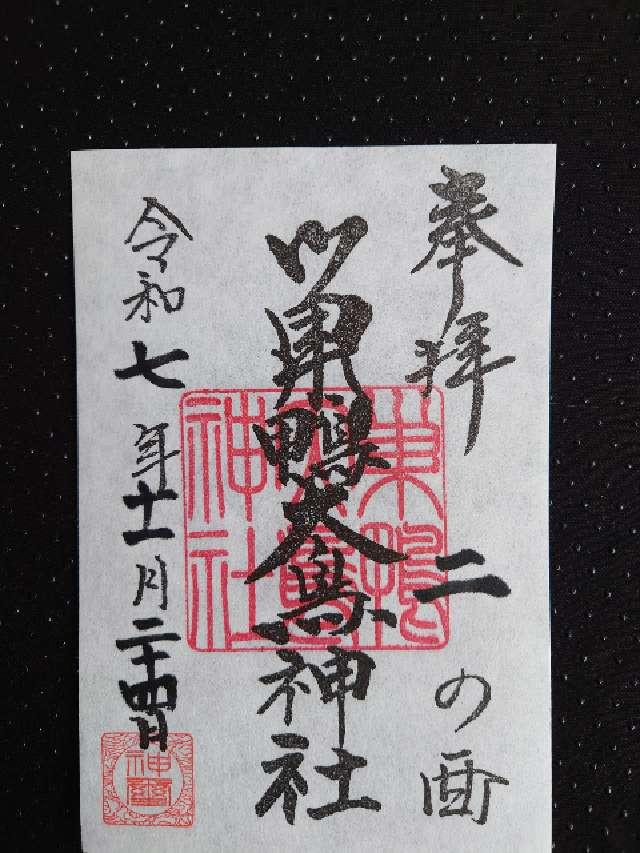 奉拝 二の酉
巣鴨大鳥神社
令和七年十一月二十四日
巣鴨
大鳥
神社
神璽